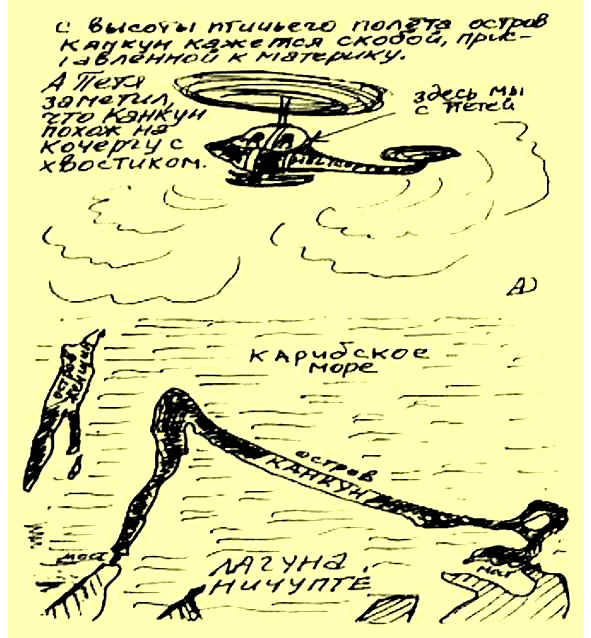 С высоты птичьего полёта остров
Канкун кажется скобой, прис-
тавленной к материку.
А Петя
заметил,
что Канкун
похож на
кочергу с
хвостиком.
здесь мы
с Петей
А)
Карибское
море
остров
женщин
остров
Канкун
мост
лагуна
Ничупте
мост